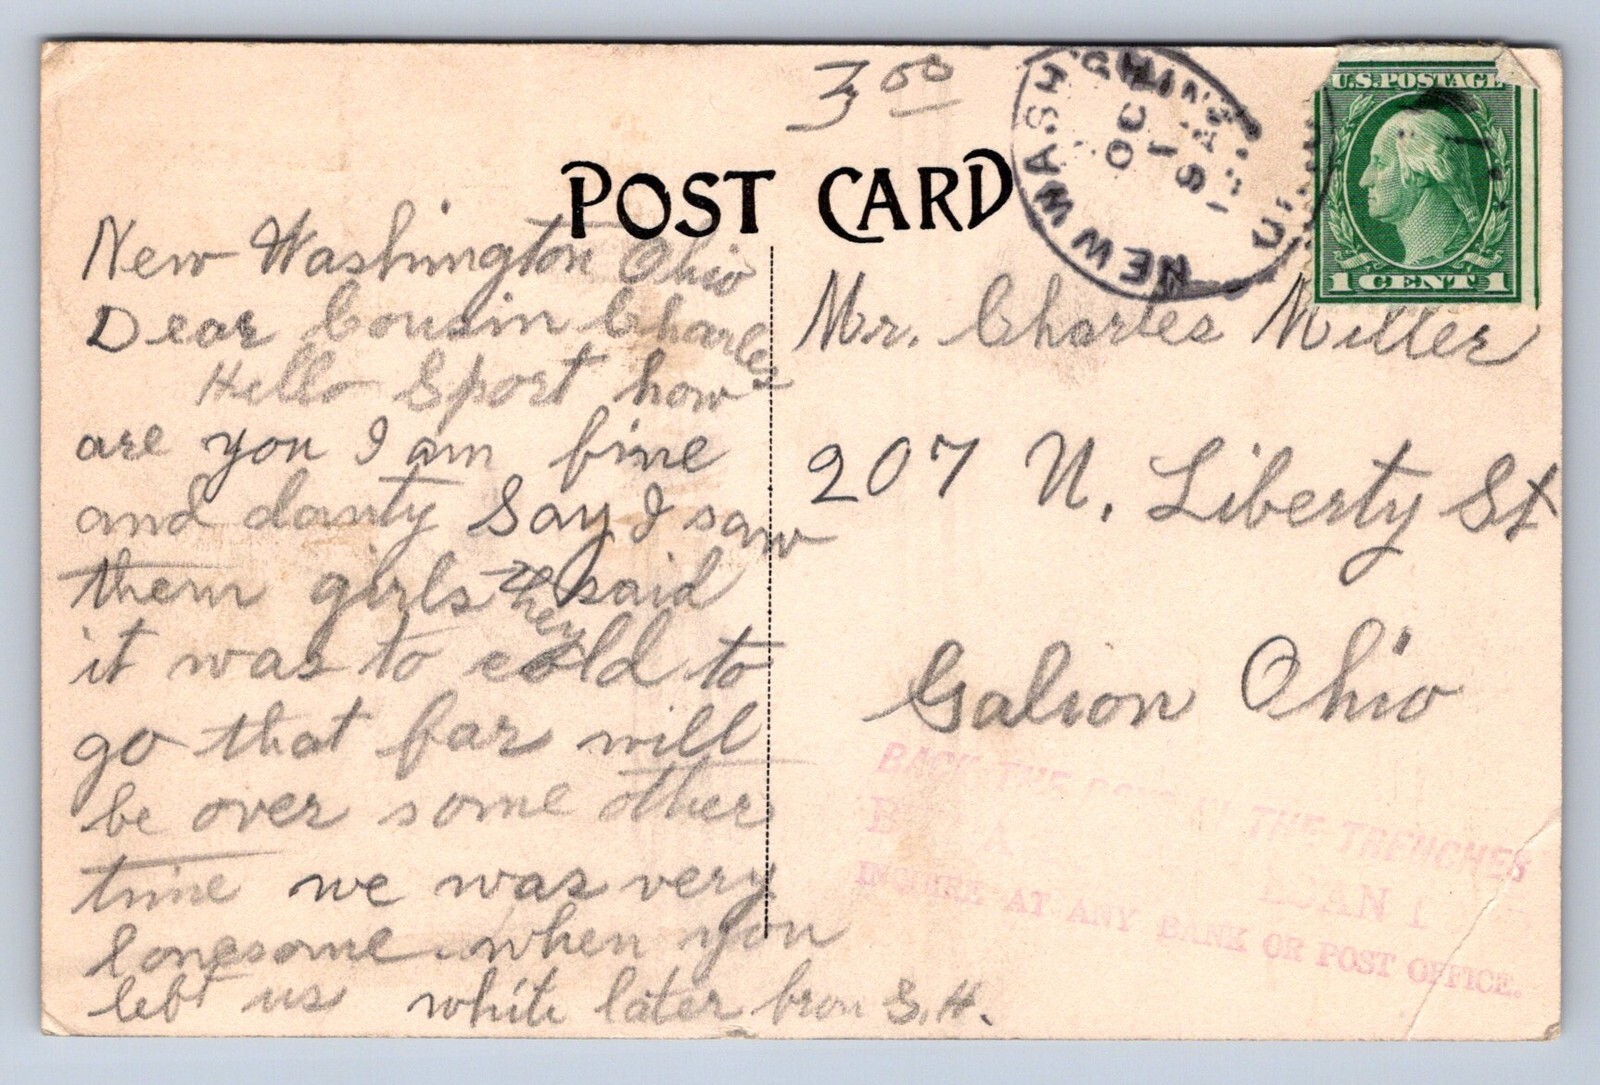 3 00
POST CARD
NEW WASHINGTON
OC
1
9 A
U.S. POSTAGE
1 CENT 1
New Washington Ohio
Dear Cousin Charles
Hello Sport how
are you I am fine
and danty Say I saw
them girls they said
it was to cold to
go that far will
be over some other
time we was very
lonesome when you
left us white later from S.H.
Mr. Charles Miller
207 N. Liberty St
Galion Ohio
BACK THE BOYS IN THE TRENCHES
LOAN
INQUIRE AT ANY BANK OR POST OFFICE.